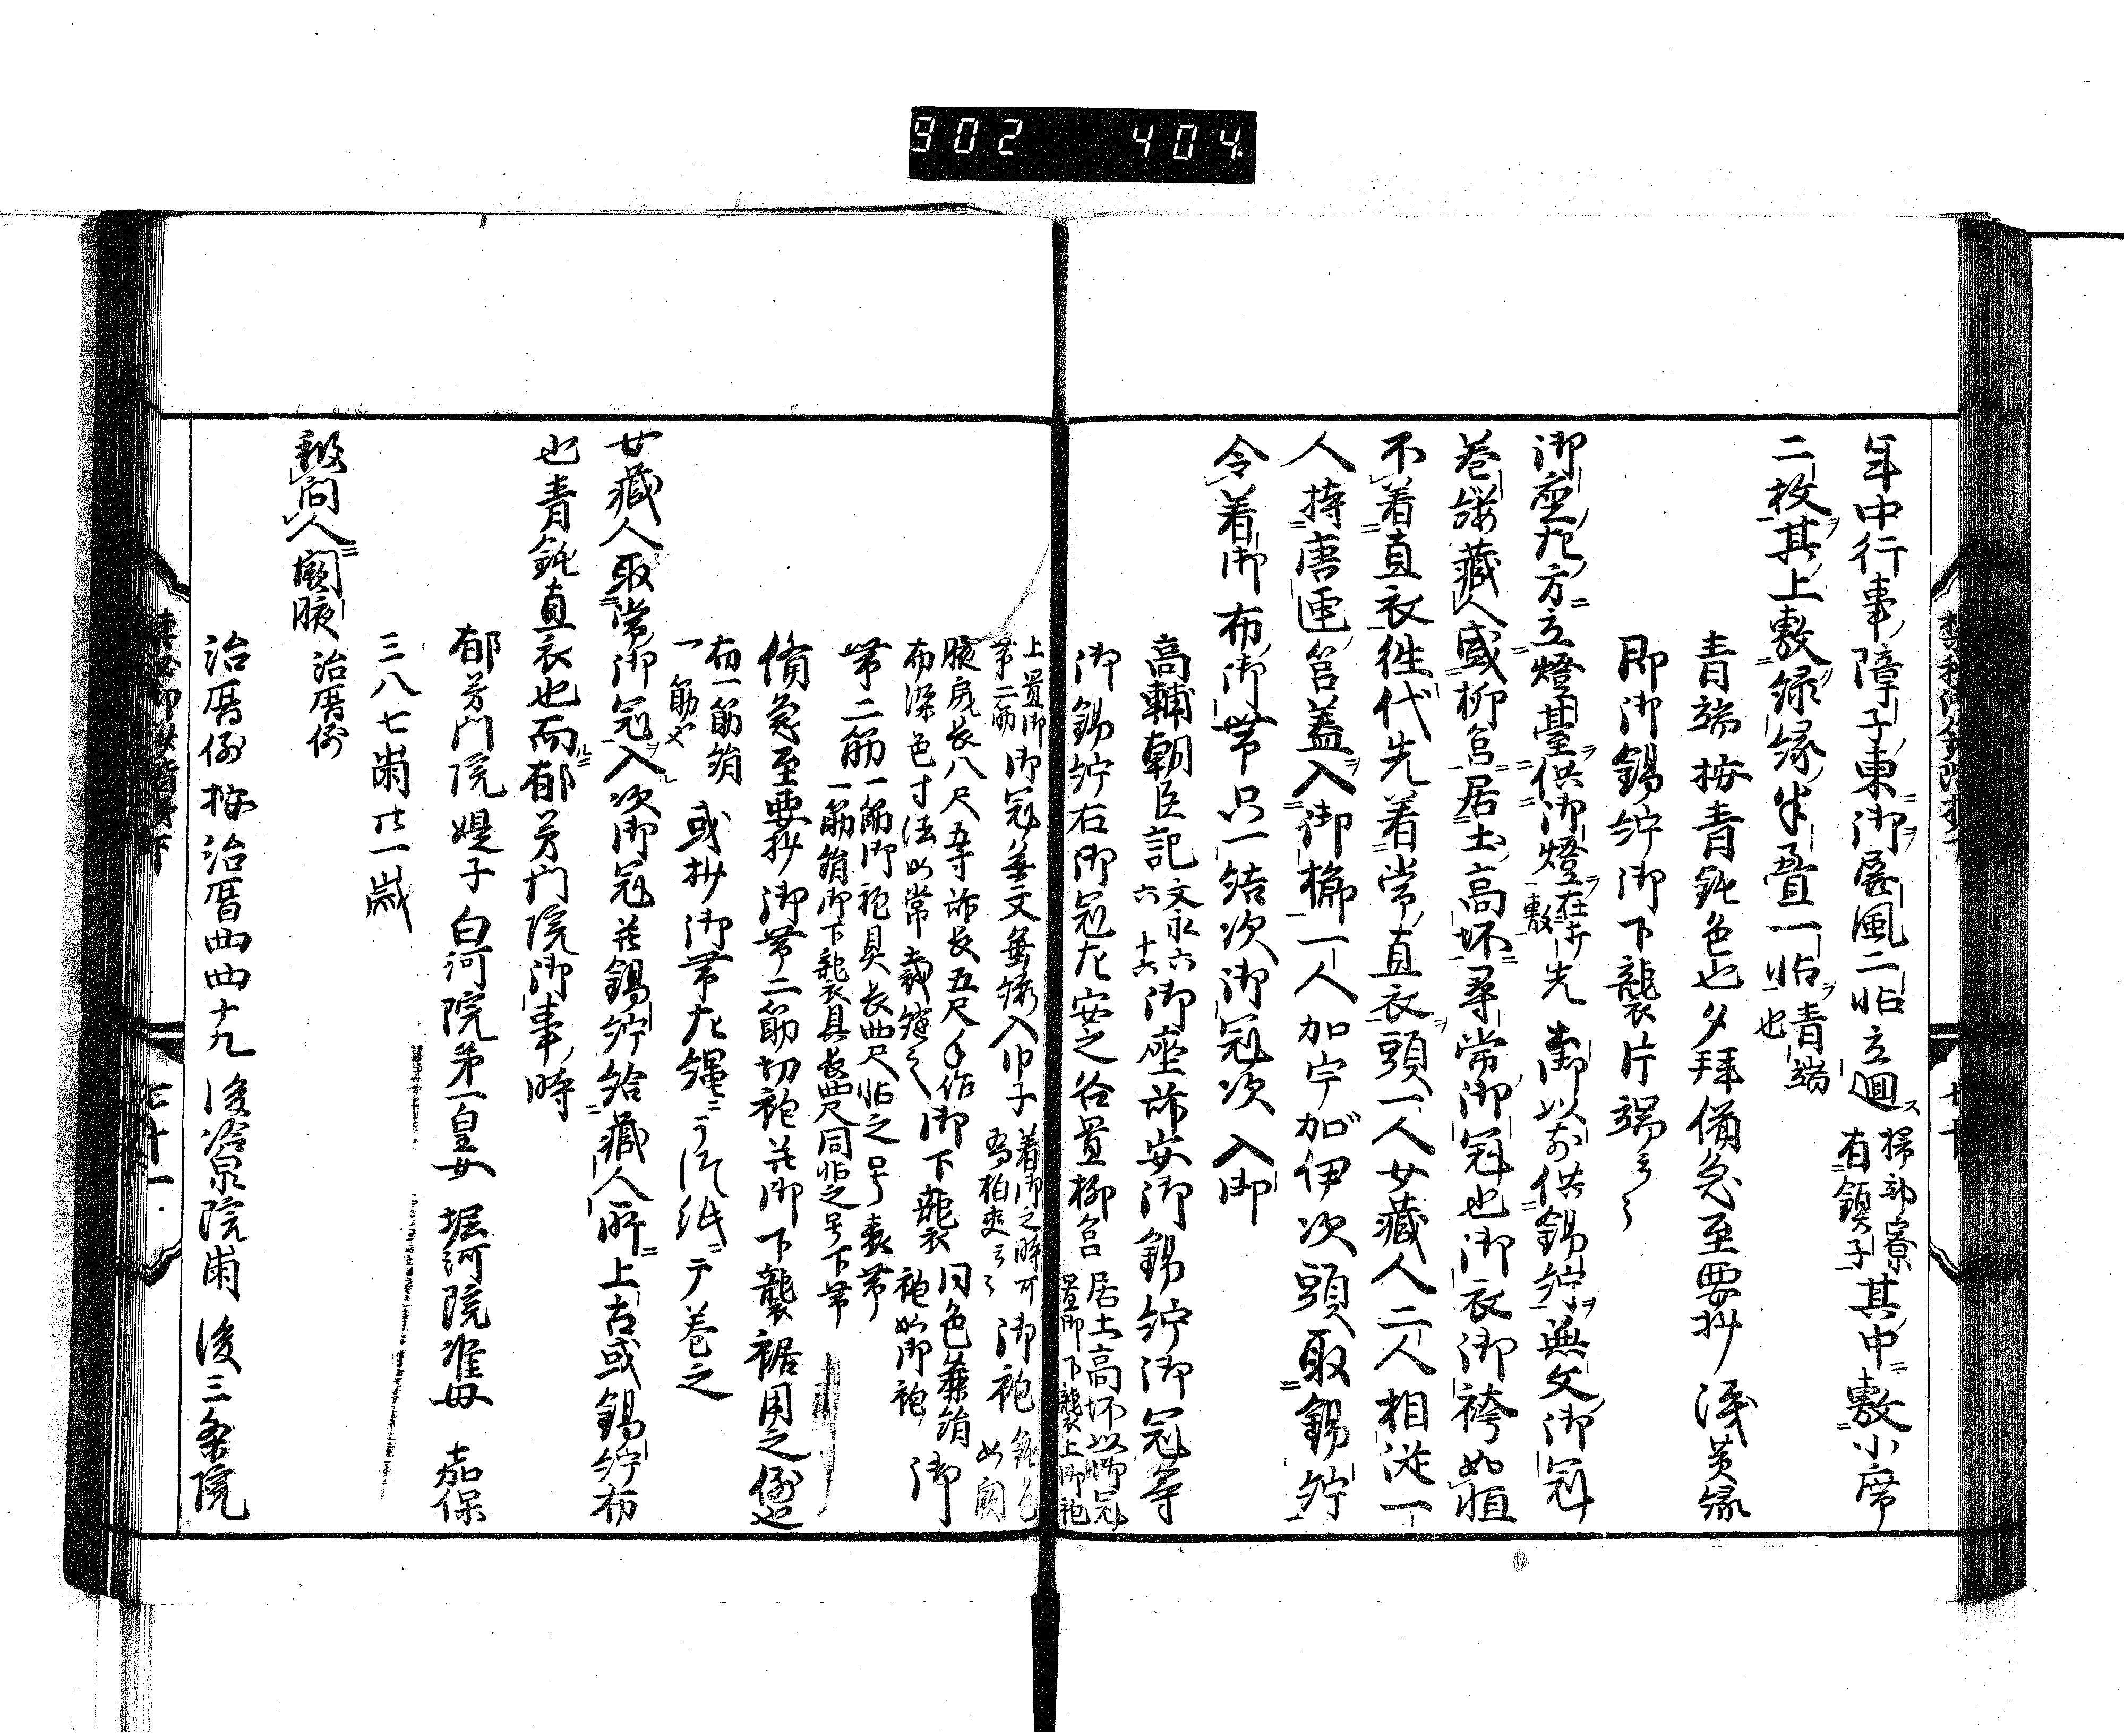 902 404
年中行事障子東御屏風二帖立廻 掃部寮有鎮子 其中敷小席
二枚其上敷緑縁半畳一帖 青端也
青端按青鈍色也夕拝備急至要抄 浅黄縁
即御錫紵御下襲片端云々
御座九方立燈臺供御燈 在打敷 先 御以前供錫紵無文御冠
巻纓蔵人盛柳筥居土高坏尋常御冠也御衣御袴如恒
不着直衣往代先着常直衣頭一人女蔵人二人相従一
人持唐匣筥蓋入御櫛一人加宇加伊次頭取錫紵
令着御布御帯只一結次御冠次入御
高輔朝臣記 文永六六十六 御座前安御錫紵御冠等
御錫紵右御冠左安之各置柳筥 居土高坏以御冠置御下襲上御袍
上置御帯二筋 御冠無文無綾入巾子 着御之時可為柏夾云々 御袍 鈍色如闕
腋尻長八尺五寸前長五尺 手作 御下襲 同色兼絹袍如御袍 御
布染色寸法如常裁縫之
帯二筋 一筋御袍具長四尺帖之号表帯一筋絹御下襲具長四尺同帖之号下帯
備急至要抄御帯二筋切袍并御下襲裾用之係也
布一筋絹一筋也 或抄御帯左縄ニテ以紙ニテ巻之
女蔵人取常御冠入次御冠并錫紵給蔵人所上古或錫紵布
也青鈍直衣也而郁芳門院御事時
郁芳門院媞子白河院第一皇女 堀河院准母 嘉保
三八七崩廿一歳
袍同人闕腋 治暦例
治暦例按治暦四四十九後冷泉院崩 後三条院
七十
七十一